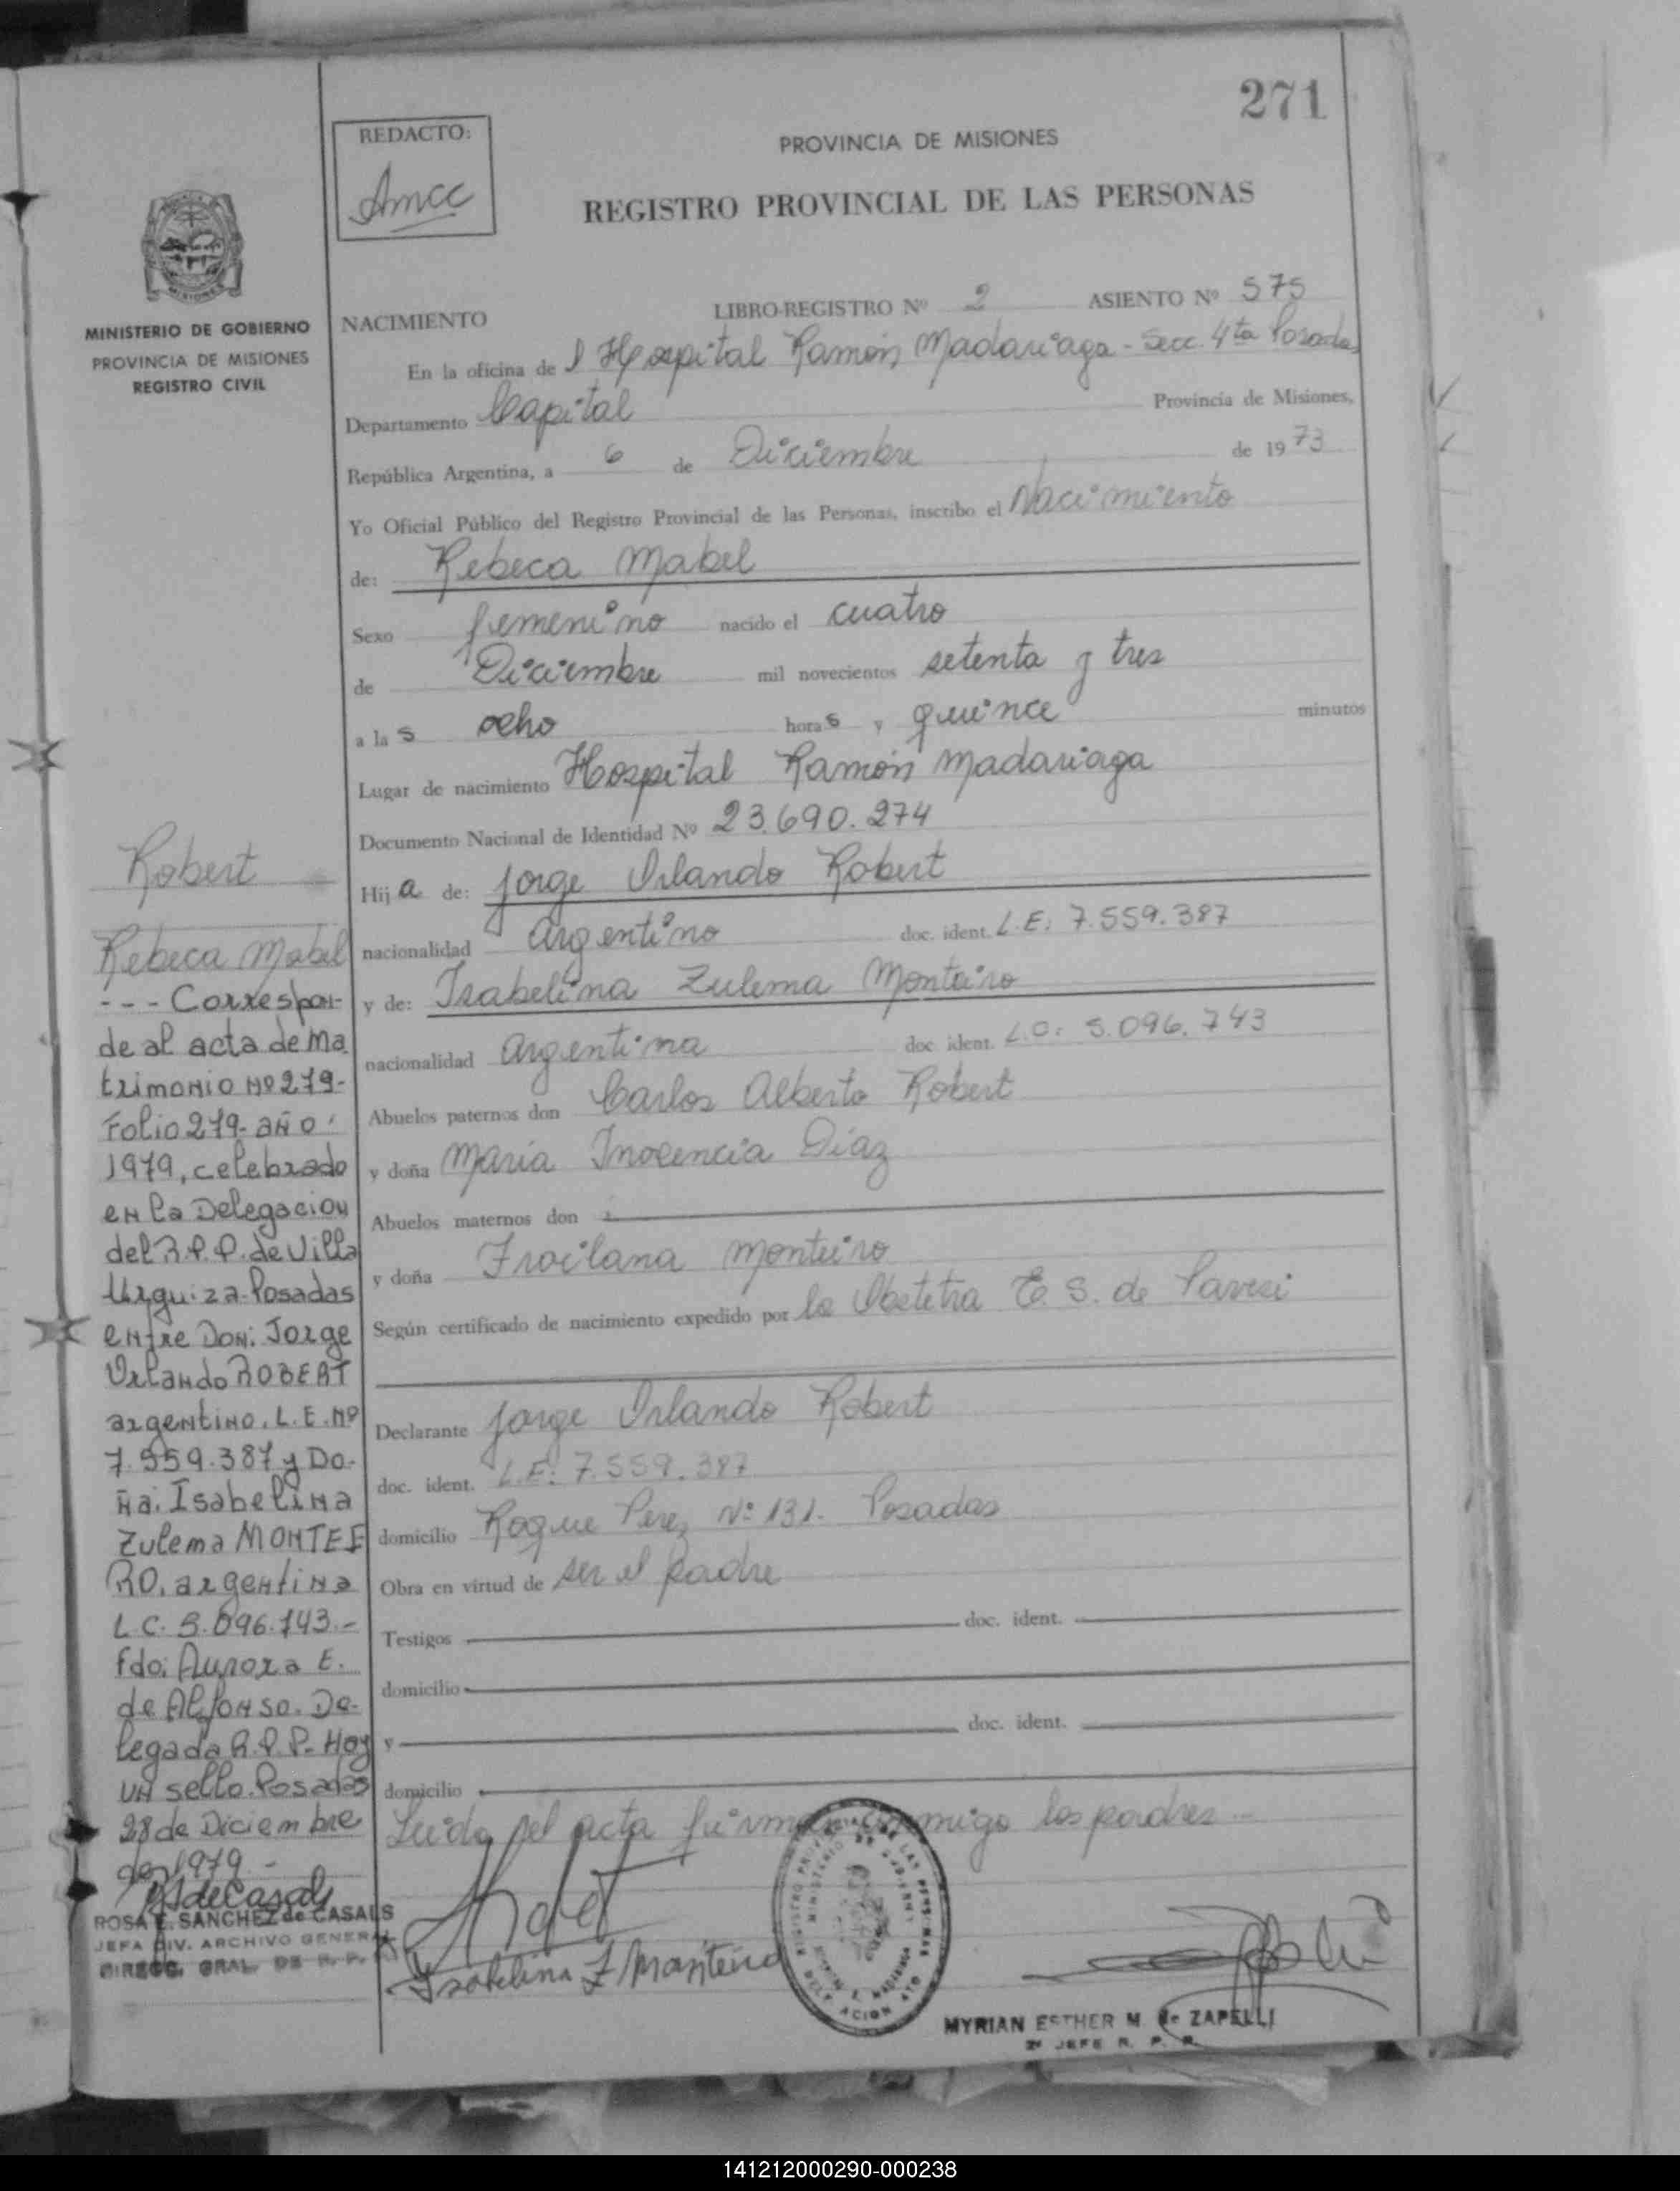 271
REDACTO:
Amcc
PROVINCIA DE MISIONES
REGISTRO PROVINCIAL DE LAS PERSONAS
MISIONES
MINISTERIO DE GOBIERNO
PROVINCIA DE MISIONES
REGISTRO CIVIL
NACIMIENTO LIBRO-REGISTRO Nº 2 ASIENTO Nº 575
En la oficina de l Hospital Ramón Madariaga - Secc. 4ta Posadas
Departamento Capital Provincia de Misiones,
República Argentina, a 6 de Diciembre de 1973
Yo Oficial Público del Registro Provincial de las Personas, inscribo el Nacimiento
de: Rebeca Mabel
Sexo femenino nacido el cuatro
de Diciembre mil novecientos setenta y tres
a las ocho horas y quince minutos
Lugar de nacimiento Hospital Ramón Madariaga
Documento Nacional de Identidad Nº 23.690.274
Hija de: Jorge Orlando Robert
nacionalidad argentino doc. ident. L.E: 7.559.387
y de: Isabelina Zulema Monteiro
nacionalidad argentina doc. ident. L.C: 5.096.743
Abuelos paternos don Carlos Alberto Robert
y doña Maria Inocencia Diaz
Abuelos maternos don
y doña Froilana Monteiro
Según certificado de nacimiento expedido por la Obstetra E. S. de Pavesi
Declarante Jorge Orlando Robert
doc. ident. L.E: 7.559.387
domicilio Roque Perez Nº 131. Posadas
Obra en virtud de ser el padre
Testigos doc. ident.
domicilio
y doc. ident.
domicilio
Leida el acta firman conmigo los padres
Isabelina Z Monteiro
MYRIAN ESTHER M. de ZAPELLI
2º JEFE R. P. P.
Robert
Rebeca Mabel
--- Correspon-
de al acta de Ma
trimonio Nº 279-
Folio 279- año
1979, celebrado
en la Delegacion
del R.P.P. de Villa
Urquiza-Posadas
entre Don: Jorge
Orlando ROBERT
argentino. L.E. Nº
7.559.387 y Do-
ña: Isabelina
Zulema MONTEI
RO. argentina
L.C. 5.096.743.-
fdo: Aurora E.
de Alfonso. De-
legada R.P.P.- Hoy
un sello. Posadas
28 de Diciembre
de 1979.-
RSdeCasals
ROSA E. SANCHEZ de CASALS
JEFA DIV. ARCHIVO GENERAL
DIRECC. GRAL. DE R. P. P.
141212000290-000238